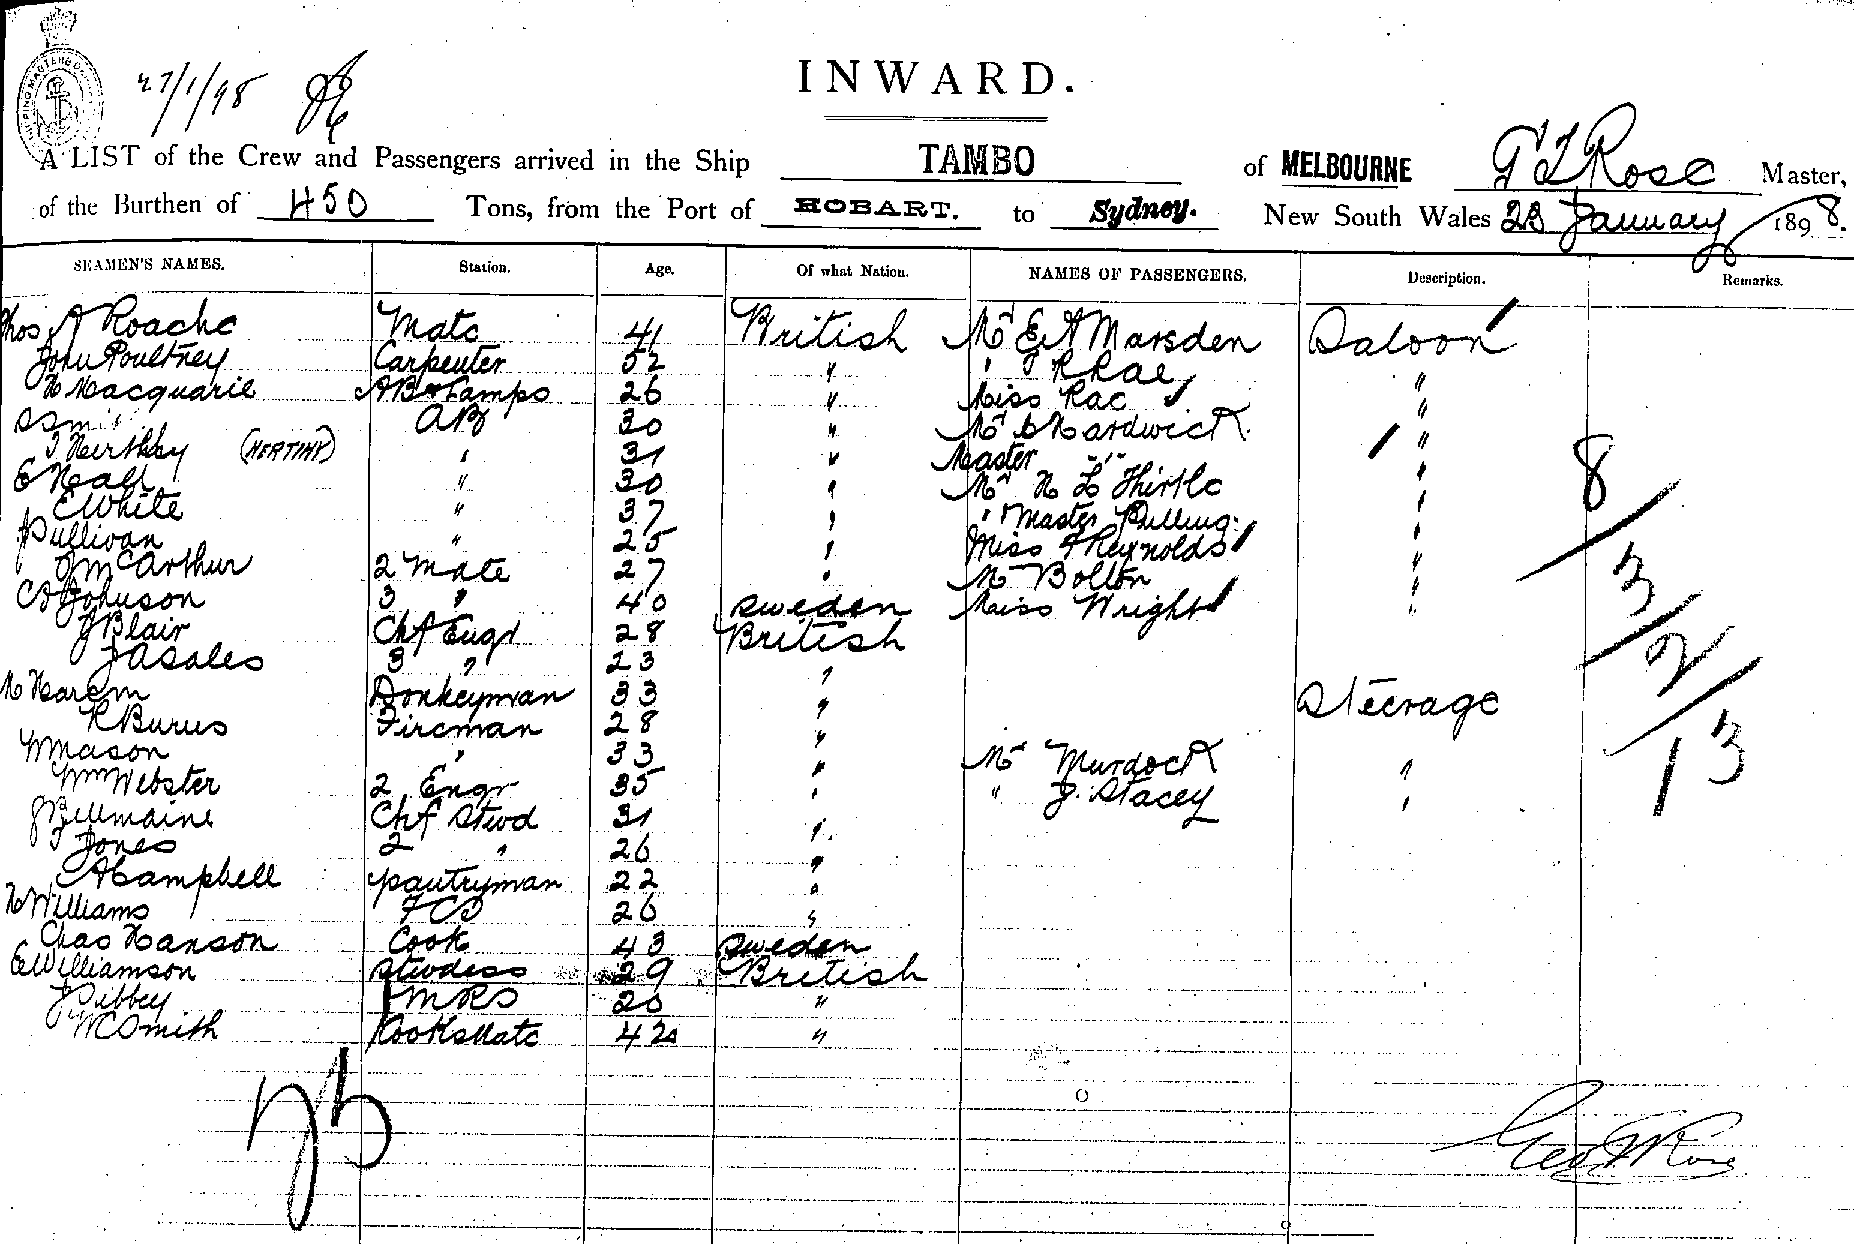 27/1/98
INWARD.
A LIST of the Crew and Passengers arrived in the Ship TAMBO of MELBOURNE G T Rose Master,
of the Burthen of 450 Tons, from the Port of HOBART. to Sydney. New South Wales 23 January 1898.
SEAMEN'S NAMES. Station. Age. Of what Nation. NAMES OF PASSENGERS. Description. Remarks.
Thos A Roache Mate 41 British Mr E A Marsden Saloon
John Poultney Carpenter 52 " " Rae "
H Macquarie AB & Lamps 26 " Miss Rae "
AB 30 " Mr Hardwick "
T Herthey (HERTINY) " 31 " Master " "
E Neall " 30 " Mr N L Thirtle "
E White " 37 " " Master Pulling "
J Sullivan " 25 " Miss F Reynolds "
McArthur 2 Mate 27 " Mr Bolton "
C Johnson 3 " 40 Sweden Miss Wright "
J Blair Chf Engr 28 British
J A Sales 3 " 23 "
Donkeyman 33 " Steerage
R Burus Fireman 28 "
W Mason " 33 " Mr Murdock "
Wm Webster 2 Engr 35 " " J. Stacey "
Chf Stwd 31 "
T Jones 2 " 26 "
A Campbell pantryman 22 "
H Williams FCS 26 "
Chas Hanson Cook 43 Sweden
E Williamson Stwdess 29 British
J Sibbey MRS 20 "
W C Smith Cooks Mate 42 "
8/3/2/13
Geo T Rose